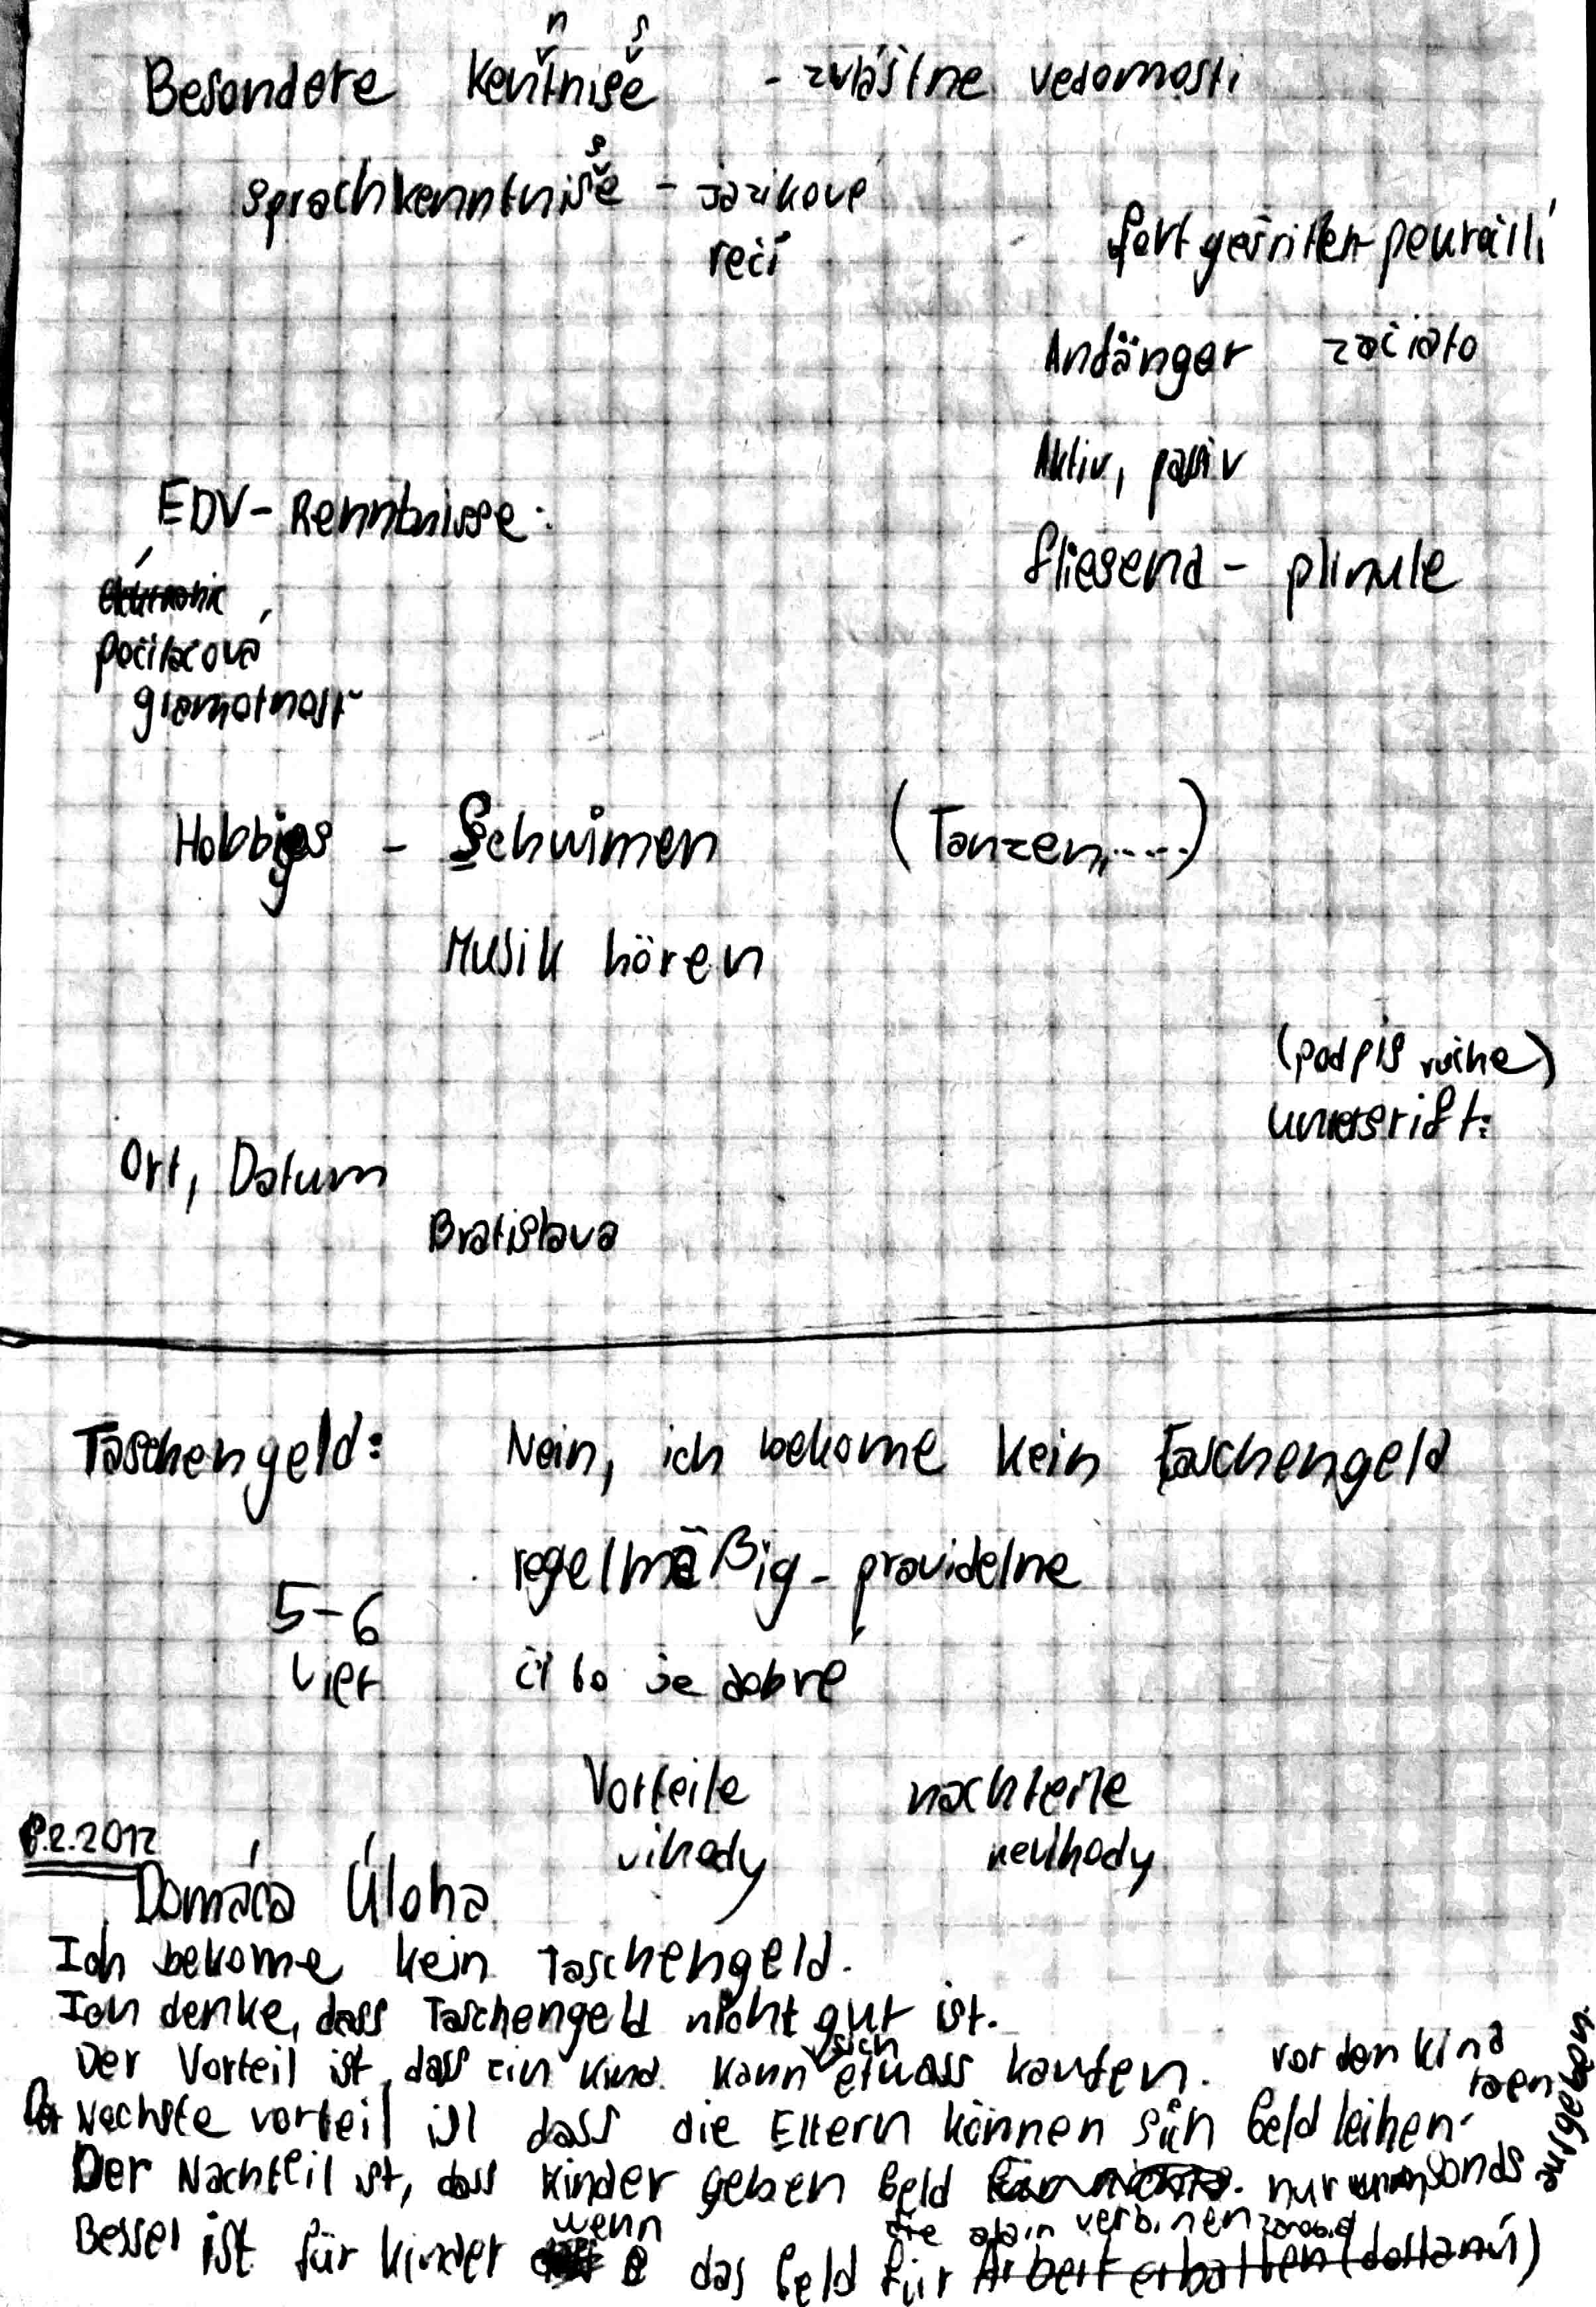 Besondere Kentnise - zvláštne vedomosti
n s
Sprachkenntniše - jazikové
s
reči
fortgešritten - pouračilí
Andänger začiato
Aktiv, pasiv
EDV - Kenntnisse:
fliesend - plinule
počítačová
gramotnosť
Hobbies - Schwimen (Tanzen,....)
Musik hören
(podpis ručne)
unterserift:
Ort, Datum
Bratislava
Taschengeld: Nein, ich bekome kein Taschengeld
regelmäßig - pravidelne
5-6
viet
či to je dobré
Vorteile nachteile
vihody nevihody
8.2.2012
Domáca Úloha
Ich bekome kein Taschengeld.
Ich denke, dass Taschengeld nicht gut ist.
Der Vorteil ist, dass ein Kind kann sich etwass kaufen. vor den Kind
Der Nachste vorteil ist dass die Eltern können sich Geld leihen.
Der Nachteil ist, dass Kinder geben Geld nur
ausgeben.
Besser ist für Kinder wenn das Geld für Arbeit erhalten (dostanú)